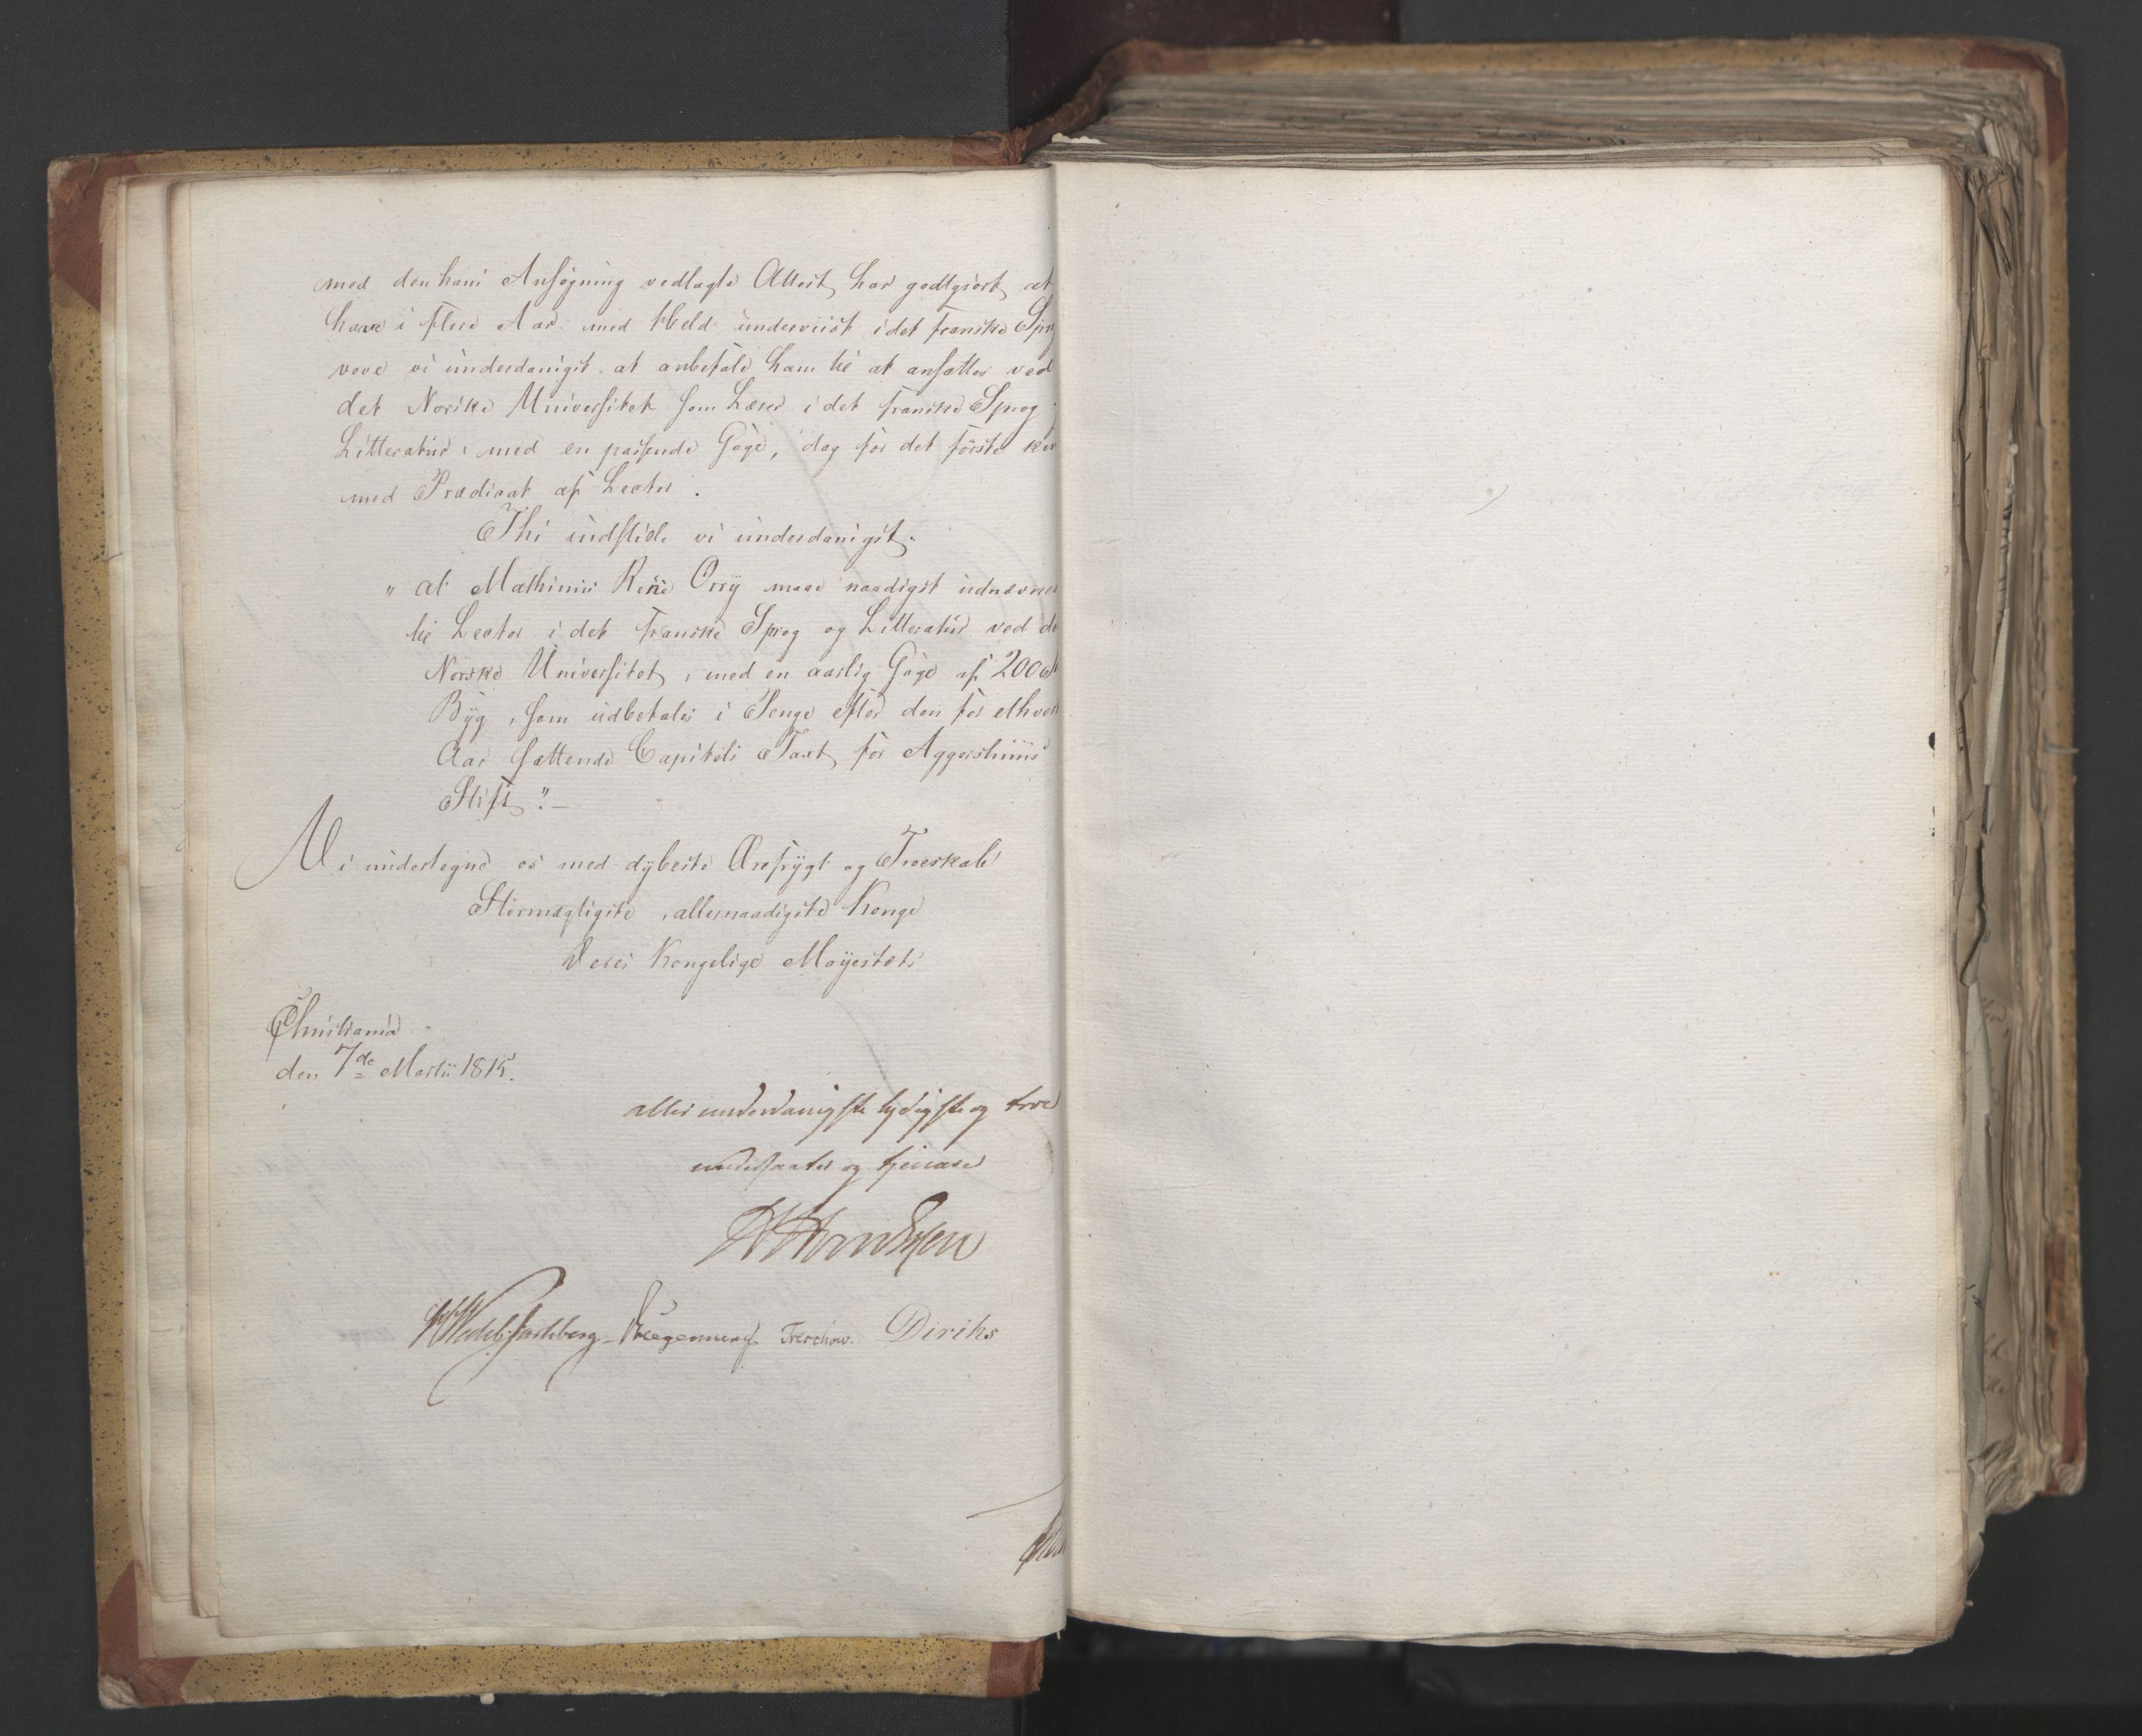 med den hans Ansøgning vedlagte Attest har godtgiort at
have i flere Aar med Held underviist i det franske Sprog
vove vi underdanigst at anbefale ham til at ansættes ved
det Norske Universitet som Lærer i det franske Sprog
Litteratur, med en passende Gage, dog for det første kun
med Prædicat af Lector.
Thi indstille vi underdanigst.
" at Mathurin René Orry maae naadigst udnævnes
til Lector i det franske Sprog og Litteratur ved det
Norske Universitet, med en aarlig Gage af 200
Byg, som udbetales i Penge efter den for ethvert
Aar sættende Capitels Taxt for Aggershuus
Stift". —
Vi undertegne os med dybeste Ærefrygt og Troeskab
Stormægtigste, allernaadigste Konge
Deres Kongelige Mayestæts
Christiania
den 7de Martii 1815.
allerunderdanigste lydigste og troe
undersaatter og tjenere
M Sommerhielm
HWedelJarlsberg Treschow. Diriks